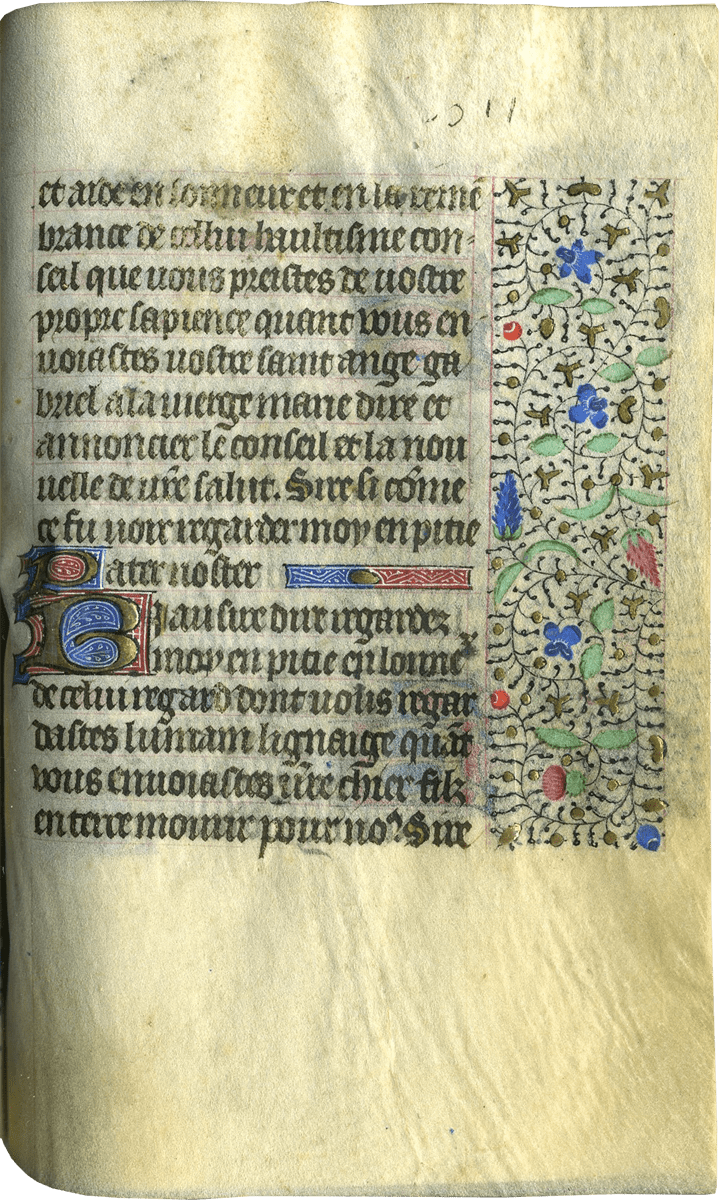 et aide en lonneur et en la remē
brance de cellui haultisme con-
seil que uous preistes de uostre
propre sapience quant vous en
uoiastes uostre saint ange ga
briel a la uierge marie dire et
annoncier le conseil et la nou
uelle de ur̄e salut. Sire si cōme
ce fu uoir regarder moy en pitie
Pater noster
Biau sire dire regardez
moy en pitie en lonneᵘʳ
de celui regard dont uous regar
dastes lumain lignaige quāt
vous enuoiastes ur̄e chier filz
en terre mourir pour noꝰ Sire